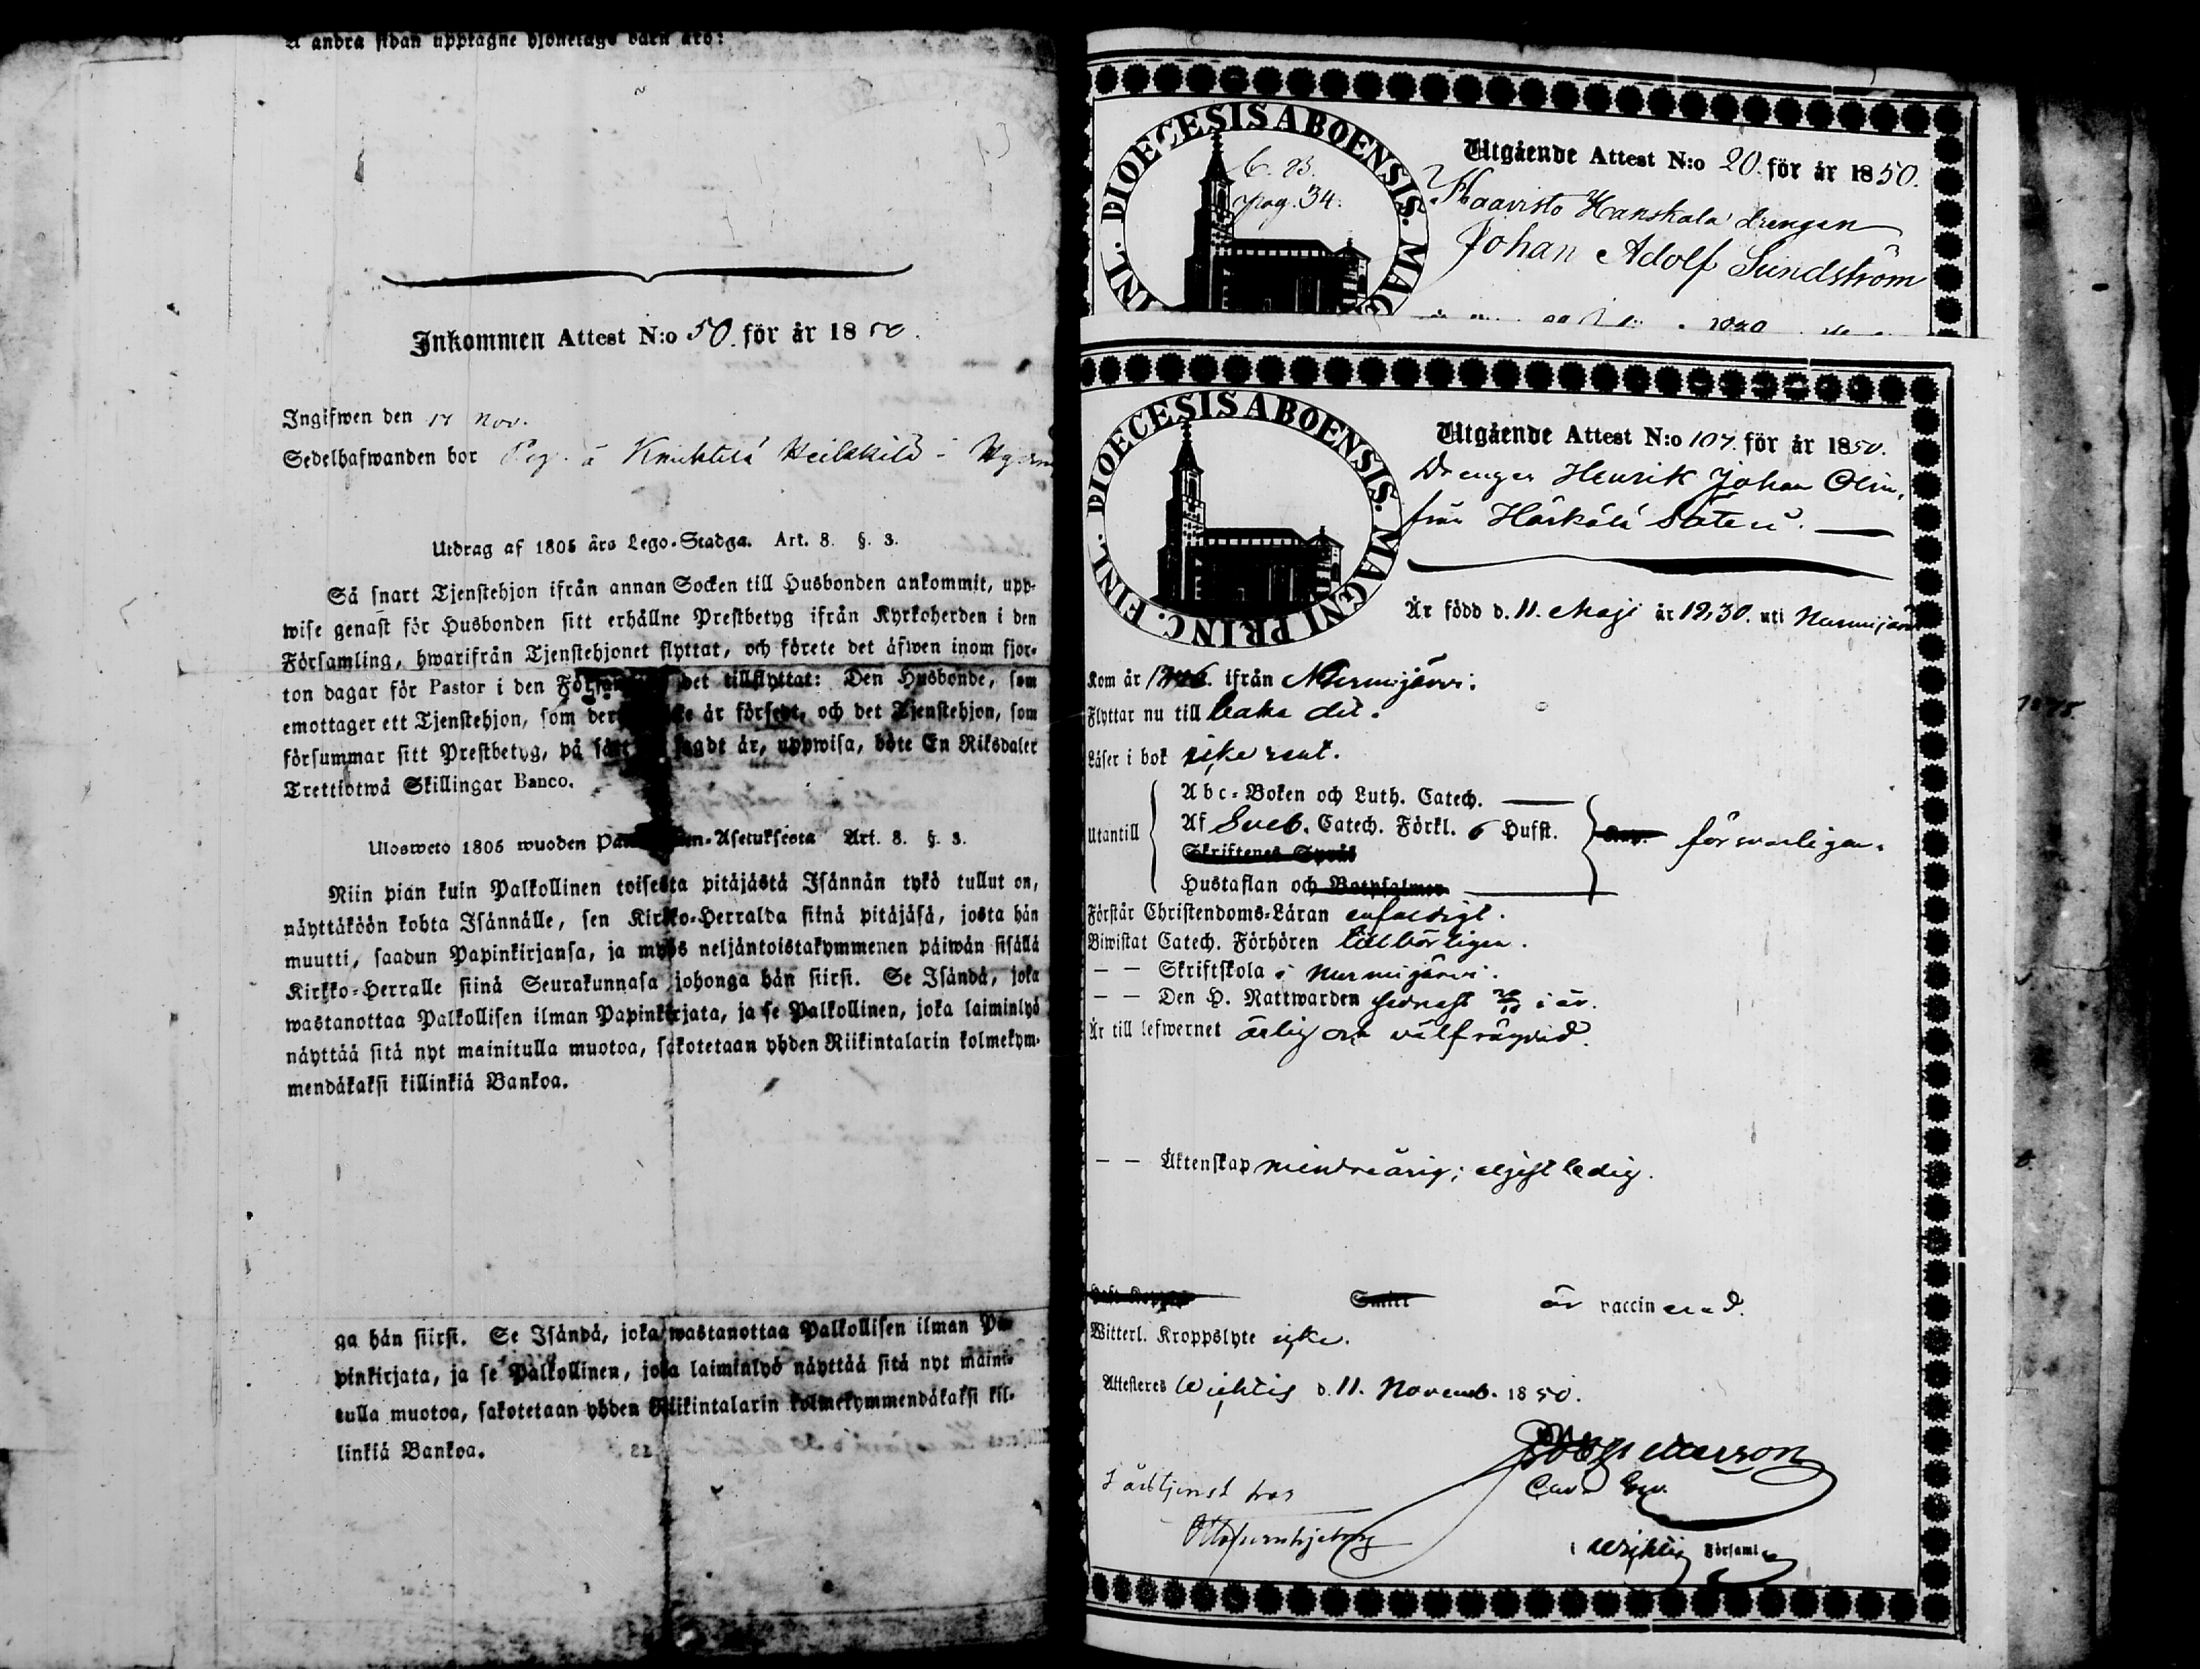 å andra sidan upptagne hjonelags barn äro:
Inkommen Attest N:o 50. för år 1850.
Ingifwen den 17 Nov.
Sedelhafwanden bor å Heikkilä i
Utdrag af 1805 års Lego-Stadga. Art. 8. §. 3.
Så snart Tjenstehjon ifrån annan Socken till Husbonden ankommit, upp-
wise genast för Husbonden sitt erhållne Prestbetyg ifrån Kyrkoherden i den
Församling, hwarifrån Tjenstehjonet flyttat, och förete det äfwen inom fjor-
ton dagar för Pastor i den det tillflyttat: Den Husbonde, som
emottager ett Tjenstehjon, som är försedt, och det Tjenstehjon, som
försummar sitt Prestbetyg, på sätt sagdt är, uppwisa, böte En Riksdaler
Trettiotwå Skillingar Banco.
Ulosweto 1805 wuoden Art. 8. §. 3.
Niin pian kuin Palkollinen toisesta pitäjästä Isännän tykö tullut on,
näyttäköön kohta Isännälle, sen Kirkko-Herralda siinä pitäjäsä, josta hän
muutti, saadun Papinkirjansa, ja myös neljäntoistakymmenen päiwän sisällä
Kirkko-Herralle siinä Seurakunnasa johonga hän siirsi. Se Isändä, joka
wastanottaa Palkollisen ilman Papinkirjata, ja se Palkollinen, joka laiminlyö
näyttää sitä nyt mainitulla muotoa, sakotetaan yhden Riikintalarin kolmekym-
mendäkaksi killinkiä Bankoa.
ga hän siirsi. Se Isändä, joka wastanottaa Palkollisen ilman Pa-
pinkirjata, ja se Palkollinen, joka laiminlyö näyttää sitä nyt maini-
tulla muotoa, sakotetaan yhden Riikintalarin kolmekymmendäkaksi kil-
linkiä Bankoa.
DIOECESIS ABOENSIS. MAG
INL.
pag. 34.
Utgående Attest N:o 20. för år 1850.
Haavisto Hanskala drengen
Johan Adolf Sundström
DIOECESIS ABOENSIS. MAGNI PRINC. FINL.
Utgående Attest N:o 107. för år 1850.
Drengen Henrik Johan Olin,
från Härkälä Säteri.
Är född d. 11. Maji år 1830. uti Nurmijärvi
Kom år ifrån Nurmijärvi.
Flyttar nu till baka dit.
Läser i bok icke rent.
Utantill
Abc-Boken och Luth. Catech.
Af Sveb. Catech. Förkl. 6 Hufst. försvarligen.
Skriftenes Språk
Hustaflan och Botpsalmer
Förstår Christendoms-Läran enfaldigt.
Biwistat Catech. Förhören tillbörligen.
— — Skriftskola i Nurmijärvi.
— — Den H. Nattwarden sednast i år.
Är till lefwernet ärlig och välfrägdad.
— — Äktenskap mindreårig; eljest ledig.
är vaccinerad.
Witterl. Kroppslyte icke.
Attesteres Wichtis d. 11. Novemb. 1850.
I årstjenst hos
i Wichtis Församl.